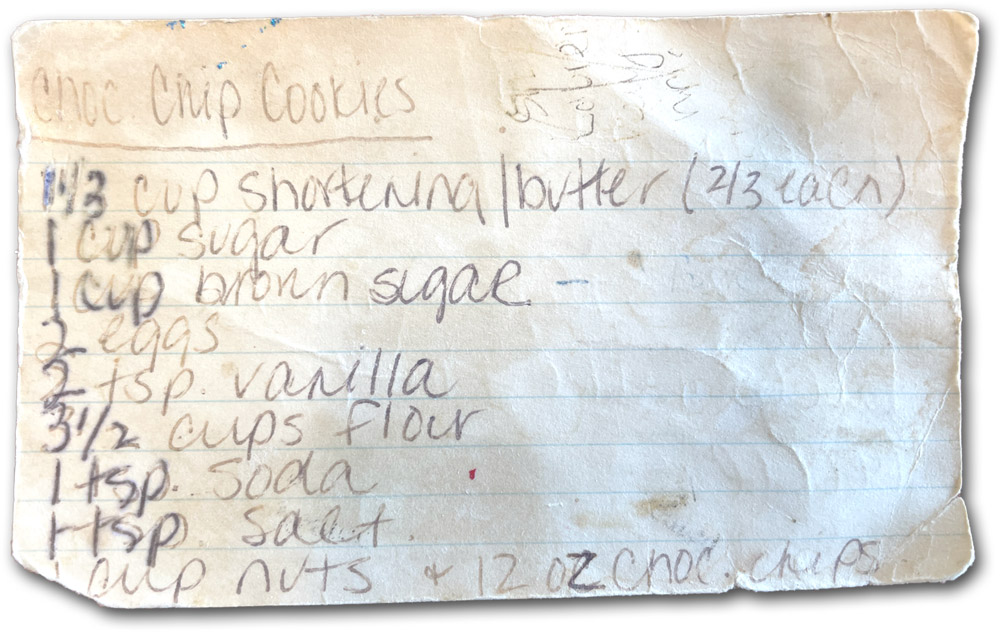 Choc Chip Cookies
1 1/3 cup shortening/butter (2/3 each)
1 cup sugar
1 cup brown sugar
2 eggs
2 tsp. vanilla
3 1/2 cups flour
1 tsp. soda
1 tsp. salt.
1 cup nuts + 12 oz choc. chips